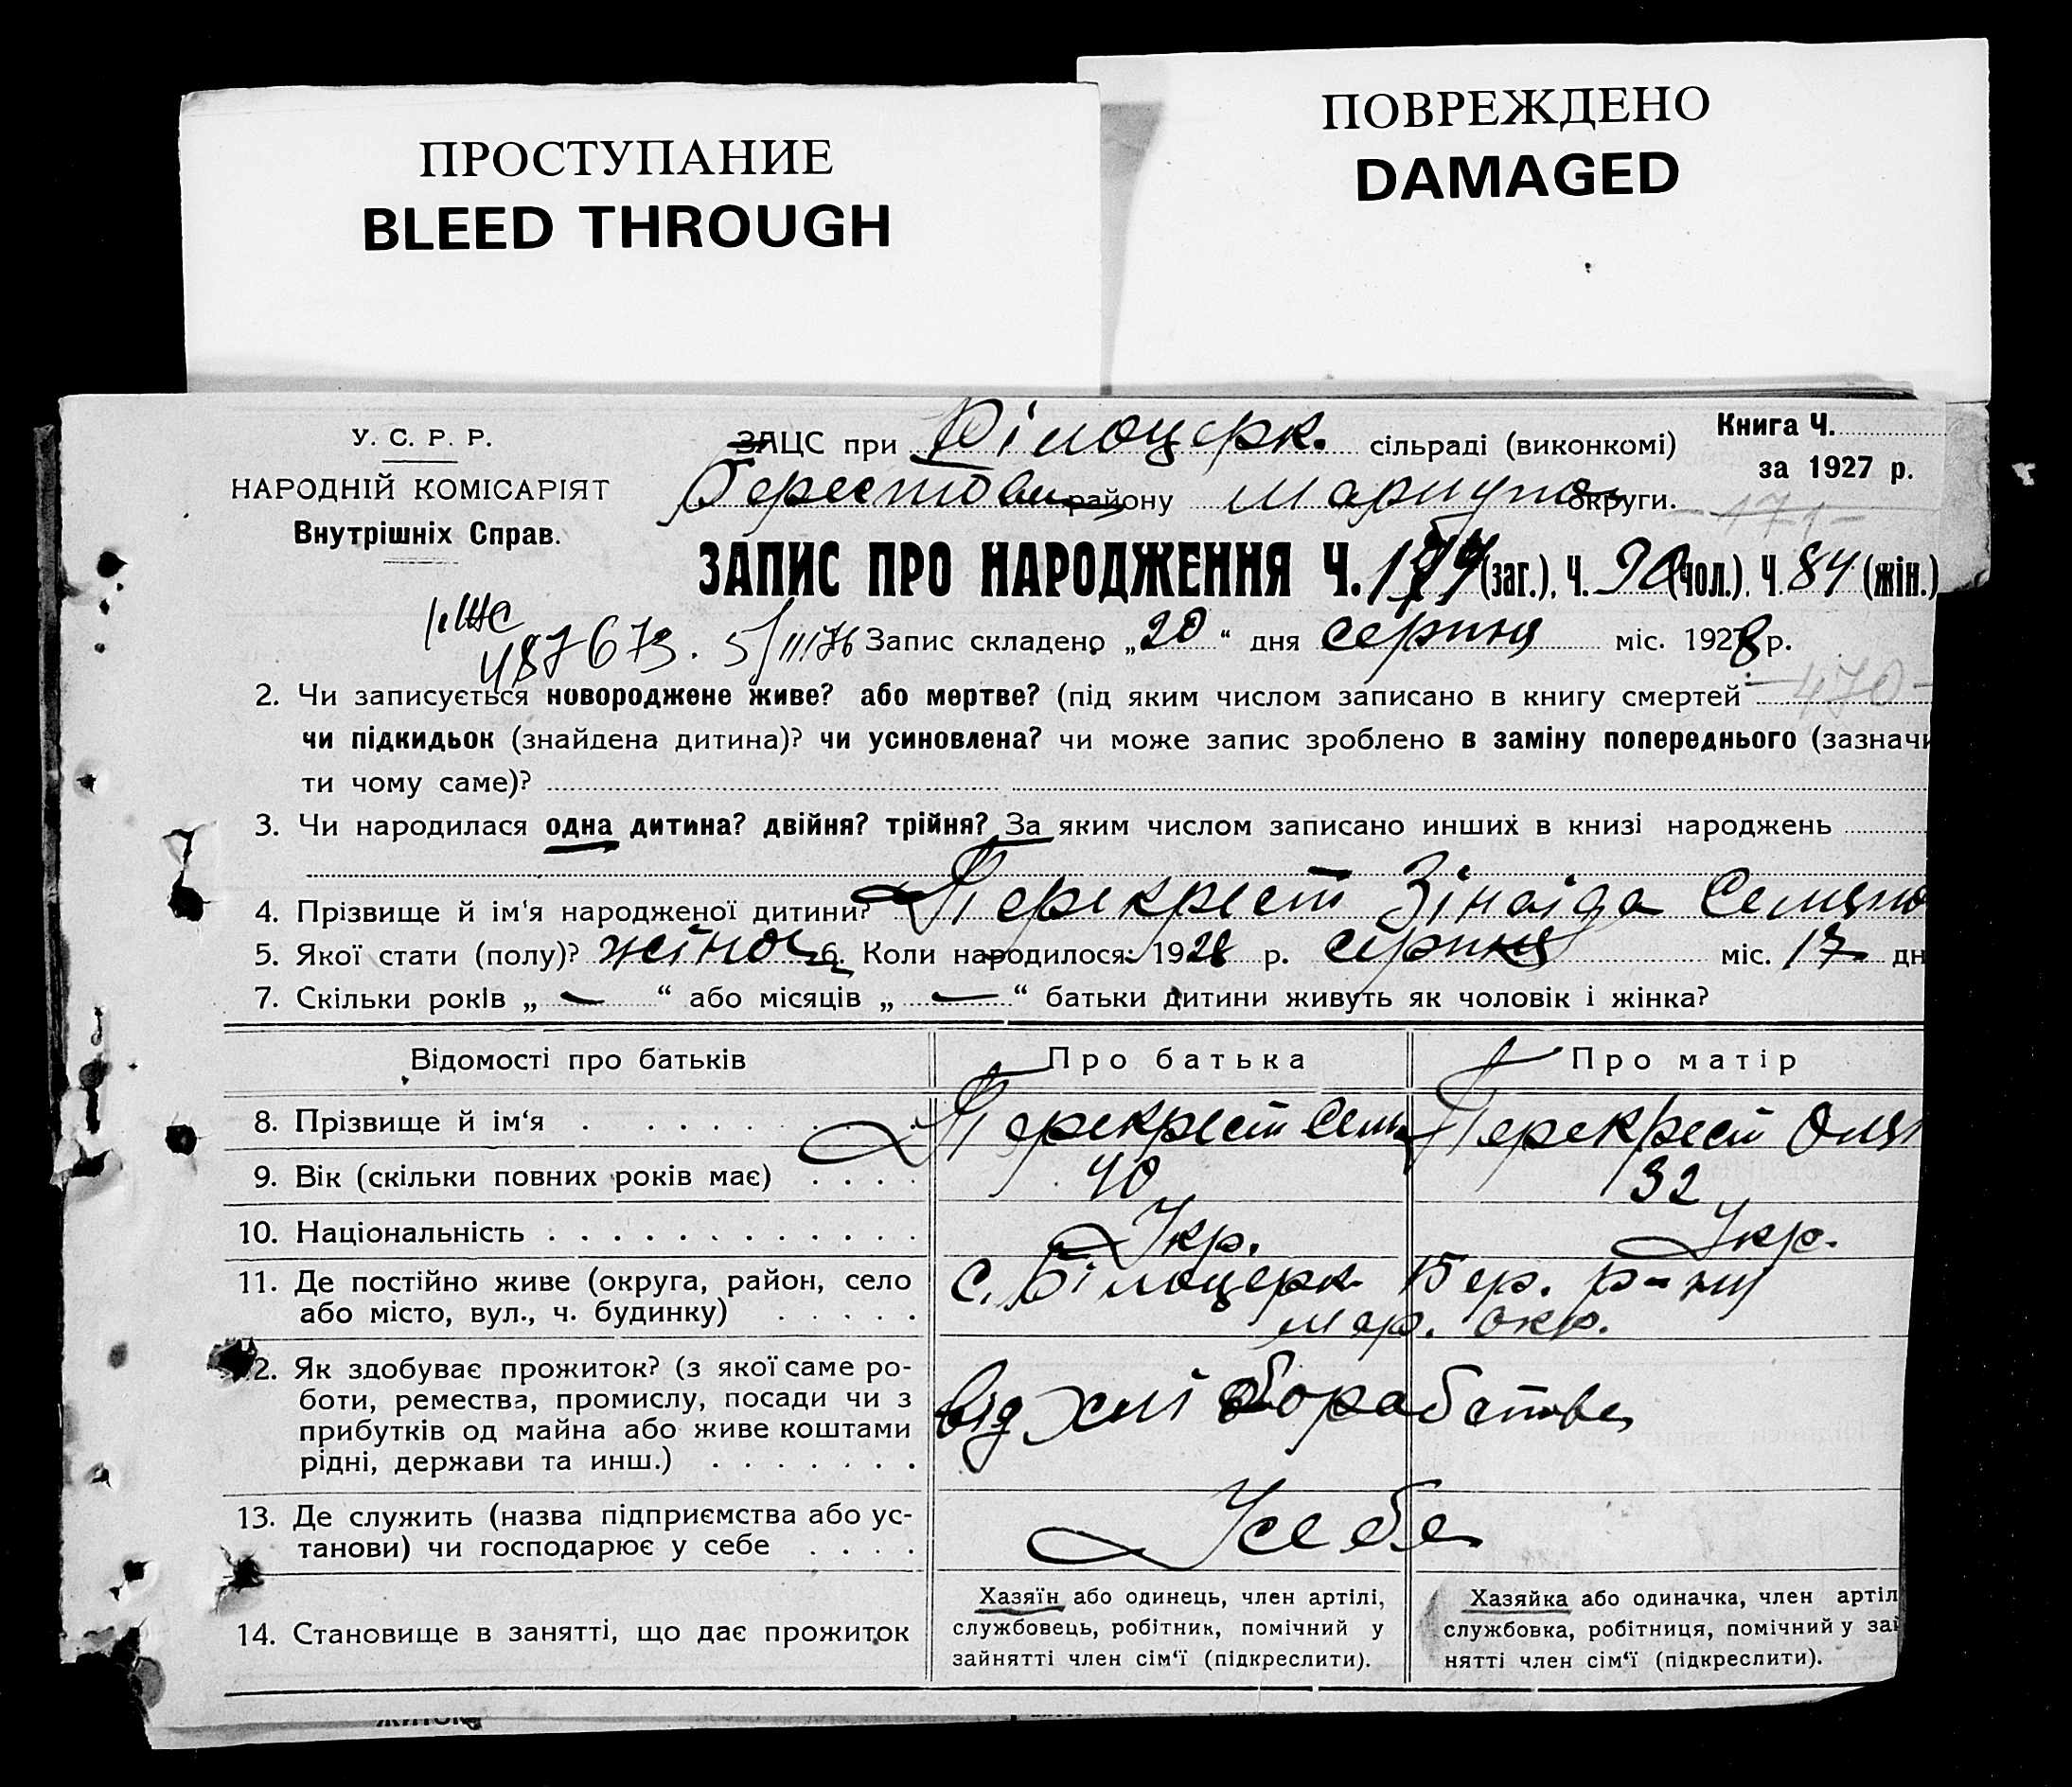 ПРОСТУПАНИЕ
BLEED THROUGH
ПОВРЕЖДЕНО
DAMAGED
У. С. Р. Р.
НАРОДНІЙ КОМІСАРІЯТ
Внутрішніх Справ.
ЗАЦС при Білоцерк. сільраді (виконкомі)
Книга Ч.
за 1927 р.
Берестов району Мариуп округи.
-171-
ЗАПИС ПРО НАРОДЖЕННЯ Ч. 174 (заг.), Ч. 90 (чол.), Ч. 84 (жін.)
487673. 5/III76 Запис складено „20“ дня серпня міс. 1928 р.
2. Чи записується новороджене живе? або мертве? (під яким числом записано в книгу смертей -470-
чи підкидьок (знайдена дитина)? чи усиновлена? чи може запис зроблено в заміну попереднього (зазначи
ти чому саме)?
3. Чи народилася одна дитина? двійня? трійня? За яким числом записано инших в книзі народжень
4. Прізвище й ім'я народженої дитини? Перекрест Зінаіда Семено
5. Якої стати (полу)? жіноч 6. Коли народилося: 1928 р. серпня міс. 17 дн
7. Скільки років „ — “ або місяців „ — “ батьки дитини живуть як чоловік і жінка?
Відомості про батьків
Про батька
Про матір
8. Прізвище й ім'я . . . . . . . . Перекрест Сем Перекрест
9. Вік (скільки повних років має) . . . . 40 32
10. Національність . . . . . . . . . . . . Укр. Укр.
11. Де постійно живе (округа, район, село с. Білоцерк. Бер. р-ну
або місто, вул., ч. будинку) . . . . . Мар. окр.
12. Як здобуває прожиток? (з якої саме ро-
боти, ремества, промислу, посади чи з
прибутків од майна або живе коштами
рідні, держави та инш.) . . . . . . .
від хліборабства
13. Де служить (назва підприємства або ус-
танови) чи господарює у себе . . . .
У себе
14. Становище в занятті, що дає прожиток
Хазяїн або одинець, член артілі,
службовець, робітник, помічний у
зайнятті член сім'ї (підкреслити).
Хазяйка або одиначка, член артіл
службовка, робітниця, помічний у зай
нятті член сім'ї (підкреслити).